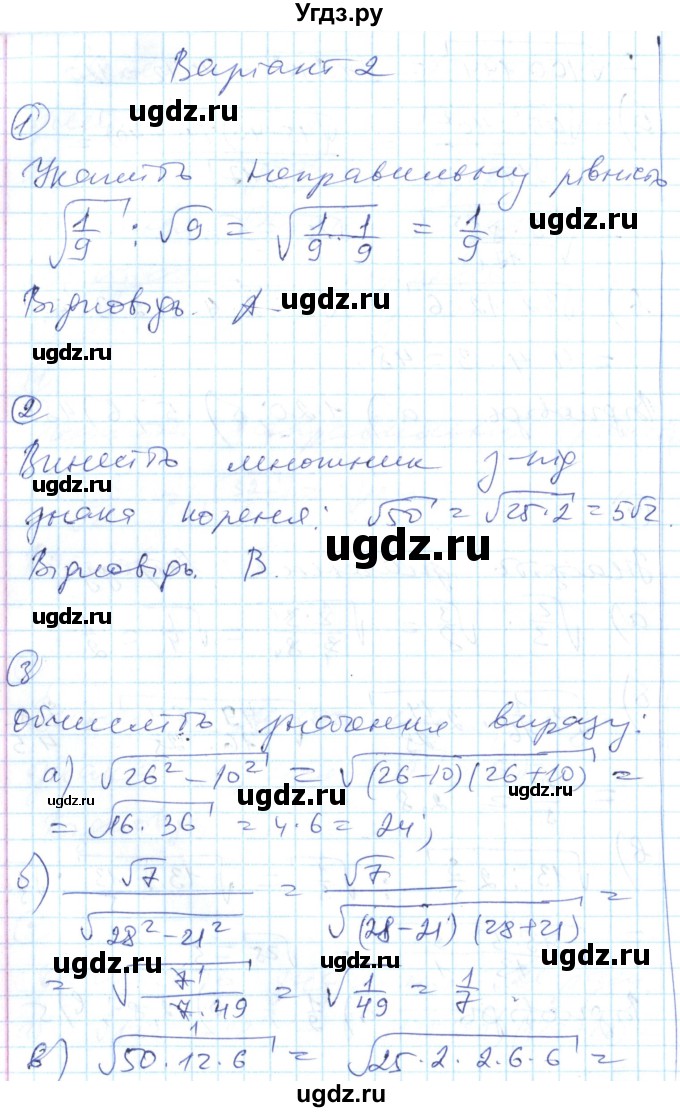 Угдз.ру
Варіант 2
ugdz.ru
1
Укажіть неправильну рівність
ugdz.ru
√(1/9) : √9 = √(1/9 · 1/9) = 1/9
Відповідь. А.
ugdz.ru
ugdz.ru
2
Винесіть множник з-під
ugdz.ru
знака кореня: √50 = √(25·2) = 5√2.
ugdz.ru
Відповідь. В.
ugdz.ru
3
Обчисліть значення виразу:
а) √(26² - 10²) = √((26-10)(26+10)) =
ugdz.ru ugdz.ru ugdz.ru
= √(16·36) = 4·6 = 24;
б) √7/√(28² - 21²) = √7/√((28-21)(28+21)) =
ugdz.ru ugdz.ru
= √(7/(7·49)) = √(1/49) = 1/7
в) √(50·12·6) = √(25·2·2·6·6) =
ugdz.ru